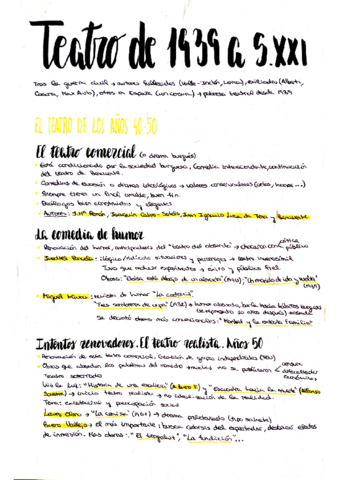 Teatro de 1939 a S.XXI
Tras la guerra civil → autores fallecidos (Valle-Inclán, Lorca), exiliados (Alberti,
Casona, Max Aub), otros en España (con censura) → pobreza teatral desde 1939
EL TEATRO DE LOS AÑOS 40-50
El teatro comercial (o drama burgués)
Está condicionado por la sociedad burguesa. Comedia intrascendente, continuación
del teatro de Benavente.
Comedias de evasión o dramas ideológicos → valores conservadores
Siempre tienen un final amable, buen fin.
Diálogos bien construidos y elegantes
Autores: J.Mª Pemán, Joaquín Calvo-Sotelo, Juan Ignacio Luca de Tena y Benavente
La comedia de humor
Renovación del humor, anticipadores del "teatro del absurdo" → chocaron con crítica
público
Jardiel Poncela: ilógico/ridículo situaciones y personajes → teatro inverosímil
Tuvo que reducir → éxito y público fiel.
Obras: "Eloísa está debajo de un almendro" "Un marido de ida y vuelta"
Miguel Mihura: revista de humor "La codorniz"
"Tres sombreros de copa" → humor absurdo, burla hacia hábitos burgueses
(estrenando 20 años después)
Se decantó obras más comerciales: "Maribel y la extraña familia"
Intentos renovadores. El teatro realista. Años 50
Renovación de este teatro comercial. Creación de grupos independientes (TEU)
Obras que abordan los problemas del mundo → muchas no se publicaron censura
dificultades
económicas
Teatro soterrado
Dio la luz: "Historia de una escalera" (A. Buero V) y "Escuadra hacia la muerte" (Alfonso
Sastre) → inicio teatro realista → no idealización de la realidad.
Tema: existencial y preocupación social
Lauro Olmo → "La camisa" → drama proletariado
Buero Vallejo → el más importante; busca catarsis del espectador, destacan efectos
de inmersión. Más obras: "El tragaluz", "La fundación"...